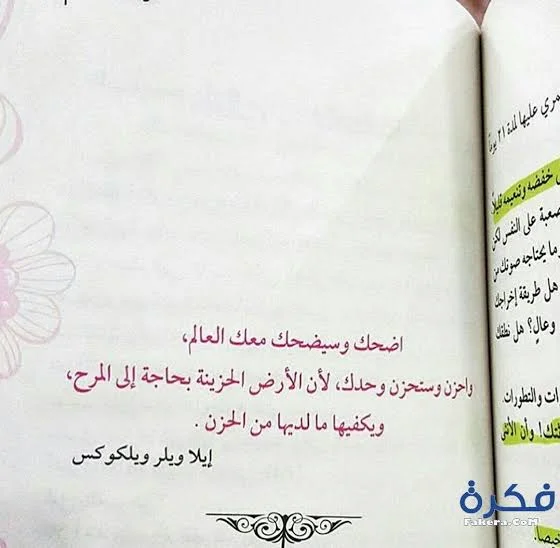 اضحك وسيضحك معك العالم،
واحزن وستحزن وحدك، لأن الأرض الحزينة بحاجة إلى المرح،
ويكفيها ما لديها من الحزن .
إيلا ويلر ويلكوكس
مري عليها لمدة ٢١ يوماً
خفضه وتنعيمه قليلاً
صعبة على النفس لكن
وما يحتاجه صوتك من
هل طريقة إخراجك
وعالٍ؟ هل نطقك
ات والتطورات.
وأن الأنثى
فكرة
Fakera.CoM